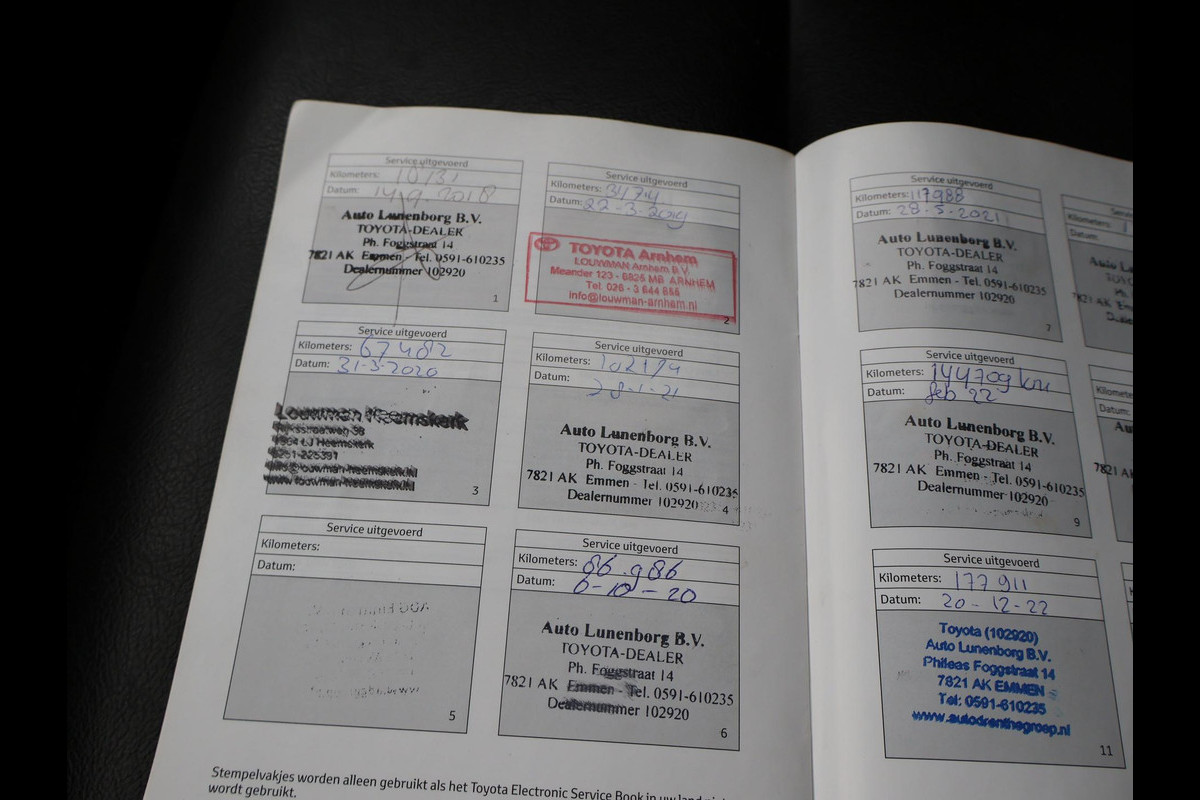 Service uitgevoerd
Kilometers:
Datum: 14.9.2018
Auto Lunenborg B.V.
TOYOTA-DEALER
Ph. Foggstraat 14
7821 AK Emmen - Tel. 0591-610235
Dealernummer 102920
1
Service uitgevoerd
Kilometers:
Datum: 22-3-2019
TOYOTA Arnhem
LOUWMAN Arnhem B.V.
Meander 123 - 6825 MB ARNHEM
Tel. 026 - 3 644 655
info@louwman-arnhem.nl
2
Service uitgevoerd
Kilometers: 67482
Datum: 31-3-2020
Louwman Heemskerk
Heemskerk
3
Service uitgevoerd
Kilometers:
Datum: 28-1-21
Auto Lunenborg B.V.
TOYOTA-DEALER
Ph. Foggstraat 14
7821 AK Emmen - Tel. 0591-610235
Dealernummer 102920
4
Service uitgevoerd
Kilometers:
Datum:
5
Service uitgevoerd
Kilometers: 86.986
Datum: 6-10-20
Auto Lunenborg B.V.
TOYOTA-DEALER
Ph. Foggstraat 14
7821 AK Emmen - Tel. 0591-610235
Dealernummer 102920
6
Stempelvakjes worden alleen gebruikt als het Toyota Electronic Service Book in uw land
wordt gebruikt.
Service uitgevoerd
Kilometers: 117988
Datum: 28-5-2021
Auto Lunenborg B.V.
TOYOTA-DEALER
Ph. Foggstraat 14
7821 AK Emmen - Tel. 0591-610235
Dealernummer 102920
7
Service uitgevoerd
Kilometers: 144709 km
Datum: feb 22
Auto Lunenborg B.V.
TOYOTA-DEALER
Ph. Foggstraat 14
7821 AK Emmen - Tel. 0591-610235
Dealernummer 102920
9
Service uitgevoerd
Kilometers: 177911
Datum: 20-12-22
Toyota (102920)
Auto Lunenborg B.V.
Phileas Foggstraat 14
7821 AK EMMEN
Tel: 0591-610235
www.autodrenthegroep.nl
11
Kilometers:
Datum: